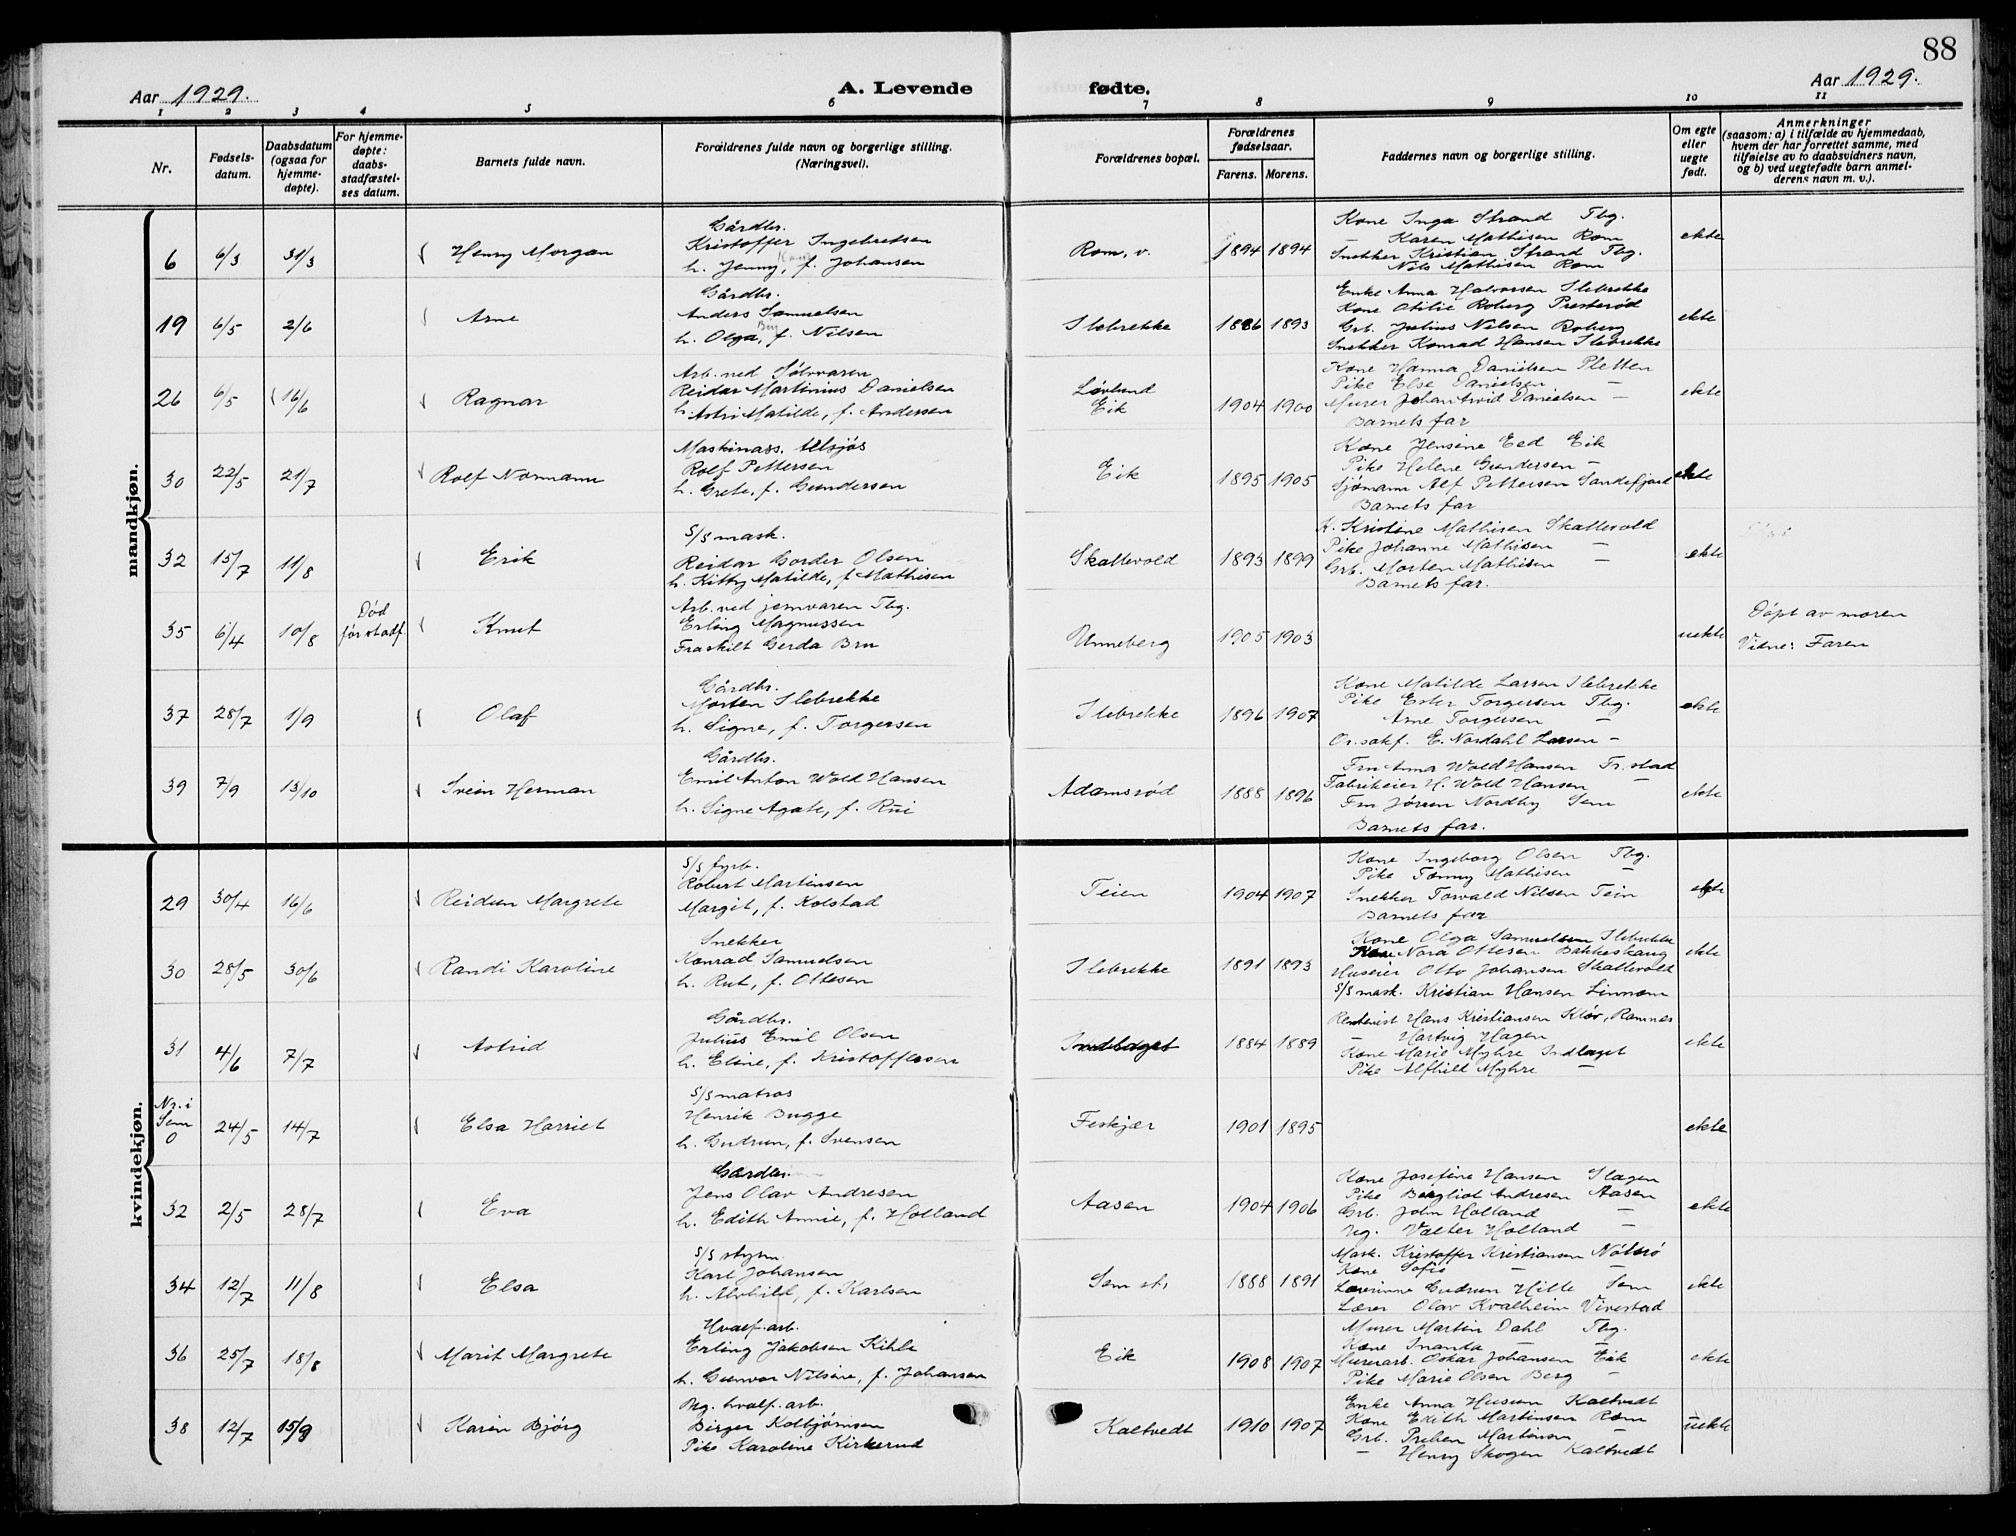 88
Aar 1929.
A. Levende
fødte.
Aar 1929.
1 2 3 4 5 6 7 8 9 10 11
Nr.
Fødsels-
datum.
Daabsdatum
(ogsaa for
hjemme-
døpte).
For hjemme-
døpte:
daabs-
stadfæstel-
ses datum.
Barnets fulde navn.
Forældrenes fulde navn og borgerlige stilling.
(Næringsvei).
Forældrenes bopæl.
Forældrenes
fødselsaar.
Farens. Morens.
Faddernes navn og borgerlige stilling.
Om egte
eller
uegte
født.
Anmerkninger
(saasom: a) i tilfælde av hjemmedaab,
hvem der har forrettet samme, med
tilføielse av to daabsvidners navn,
og b) ved uegtefødte barn anmel-
derens navn m. v.).
mandkjøn.
6 6/3 31/3 Henry Morgan
Gårdbr.
Kristoffer Ingebretsen
h. Jenny, f. Johansen
Rom, v. 1894 1894
Kone Inga Strand Tbg.
— Karen Mathisen Rom
Snekker Kristian Strand Tbg.
Nils Mathisen Rom
ekte
19 6/5 2/6 Arne
Gårdbr.
Anders Samuelsen
h. Olga, f. Nilsen
Ilebrekke 1886 1893
Enke Anna Halvorsen Ilebrekke
Kone Otilie Roberg Presterød
Grb. Julius Nilsen Roberg
Snekker Konrad Hansen Ilebrekke
ekte
26 6/5 16/6 Ragnar
Arb. ved Sølvvaren
Reidar Martinius Danielsen
h. Astri Matilde, f. Andersen
Løvlund
Eik 1904 1900
Kone Hanna Danielsen Pletten
Pike Else Danielsen —
Murer Johan Arvid Danielsen —
Barnets far
ekte
30 22/5 21/7 Rolf Normann
Maskinass. utsjøs
Rolf Pettersen
h. Grete, f. Gundersen
Eik 1895 1905
Kone Jensine Eed Eik
Pike Helene Gundersen —
Sjømann Alf Pettersen Sandefjord
Barnets far
ekte
32 15/7 11/8 Erik
S/S mask.
Reidar Gorder Olsen
h. Kitty Matilde, f. Mathisen
Skallevold 1893 1899
K. Kristine Mathisen Skallevold
Pike Johanne Mathisen —
Grb. Morten Mathisen —
Barnets far.
ekte
35 6/4 10/8
Død
før stadf.
Knut
Arb. ved jernvaren Tbg.
Erling Magnussen
Fraskilt Gerda Bru
Unneberg 1905 1903
uekte
Døpt av moren
Vidne: Faren
37 28/7 1/9 Olaf
Gårdbr.
Morten Ilebrekke
h. Signe, f. Torgersen
Ilebrekke 1896 1907
Kone Matilde Larsen Ilebrekke
Pike Ester Torgersen Tbg.
Arne Torgersen —
O.r.sakf. E. Nordahl Larsen —
ekte
39 7/9 13/10 Svein Herman
Gårdbr.
Emil Anton Wold Hansen
h. Signe Agate, f. Rui
Adamsrød 1888 1896
Fru Anna Wold Hansen Tr.stad
Fabrikeier H. Wold Hansen —
Fru Jørun Nordby Sem
Barnets far.
ekte
kvindekjøn.
29 30/4 16/6 Reidun Margrete
S/S fyrb.
Robert Martinsen
Margit, f. Kolstad
Teien 1904 1907
Kone Ingeborg Olsen Tbg.
Pike Fanny Mathisen —
Snekker Torvald Nilsen Tein
Barnets far
ekte
30 28/5 30/6 Randi Karoline
Snekker
Konrad Samuelsen
h. Rut, f. Ottesen
Ilebrekke 1891 1893
Kone Olga Samuelsen Ilebrekke
Kone Nora Ottesen Bakkeskaug
Huseier Otto Johansen Skallevold
S/S mask. Kristian Hansen Linnom
ekte
31 4/6 7/7 Astrid
Gårdbr.
Julius Emil Olsen
h. Eline, f. Kristoffersen
Indlaget 1884 1889
Rentenist Hans Kristiansen Kløv, Ramnes
— Hartvig Hagen
Kone Marie Myhre Indlaget
Pike Alfhild Myhre —
ekte
Nr. i
Sem
0
24/5 14/7 Elsa Harriet
S/S matros
Henrik Bugge
h. Gudrun, f. Svensen
Feskjær 1901 1895
ekte
32 2/5 28/7 Eva
Gårdbr.
Jens Olav Andresen
h. Edith Annie, f. Holland
Aasen 1904 1906
Kone Josefine Hansen Slagen
Pike Bergliot Andresen Aasen
Grb. John Holland —
Ug. Valter Holland —
ekte
34 12/7 11/8 Elsa
S/S styrm.
Karl Johansen
h. Alvhild, f. Karlsen
Sem st. 1888 1891
Mask. Kristoffer Kristiansen Nøtterø
Kone Sofie — —
Lærerinne Gudrun Hille Sem
Lærer Olav Kvalheim Vivestad
ekte
36 25/7 18/8 Marit Margrete
Hvalf. arb.
Erling Jakobsen Kihle
h. Gunvor Nilsine, f. Johansen
Eik 1908 1907
Murer Martin Dahl Tbg.
Kone Inanda — —
Murerarb. Oskar Johansen Eik
Pike Marie Olsen Berg
ekte
38 12/7 15/9 Karin Bjørg
Ug. hvalf. arb.
Birger Kolbjørnsen
Pike Karoline Kirkerud
Kaltvedt 1910 1907
Enke Anna Husum Kaltvedt
Kone Edith Martinsen Rom
Grb. Preben Martinsen —
— Henry Skogen Kaltvedt
uekte